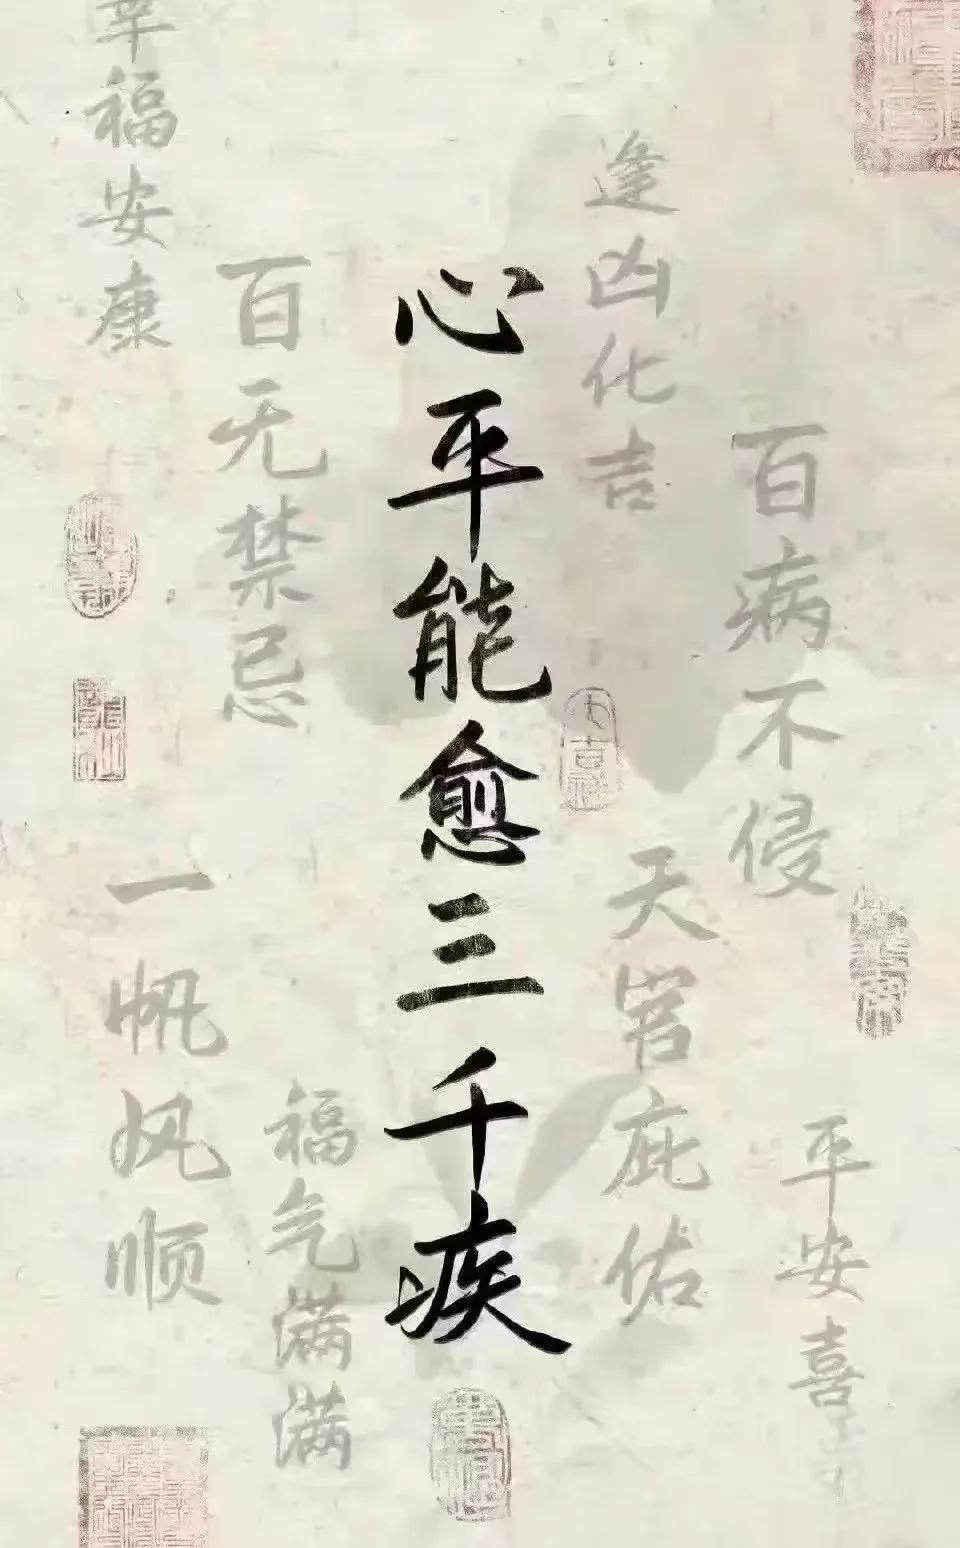 百病不侵
平安喜
逢凶化吉
天官庇佑
心平能愈三千疾
百无禁忌
福气满满
幸福安康
一帆风顺
大吉